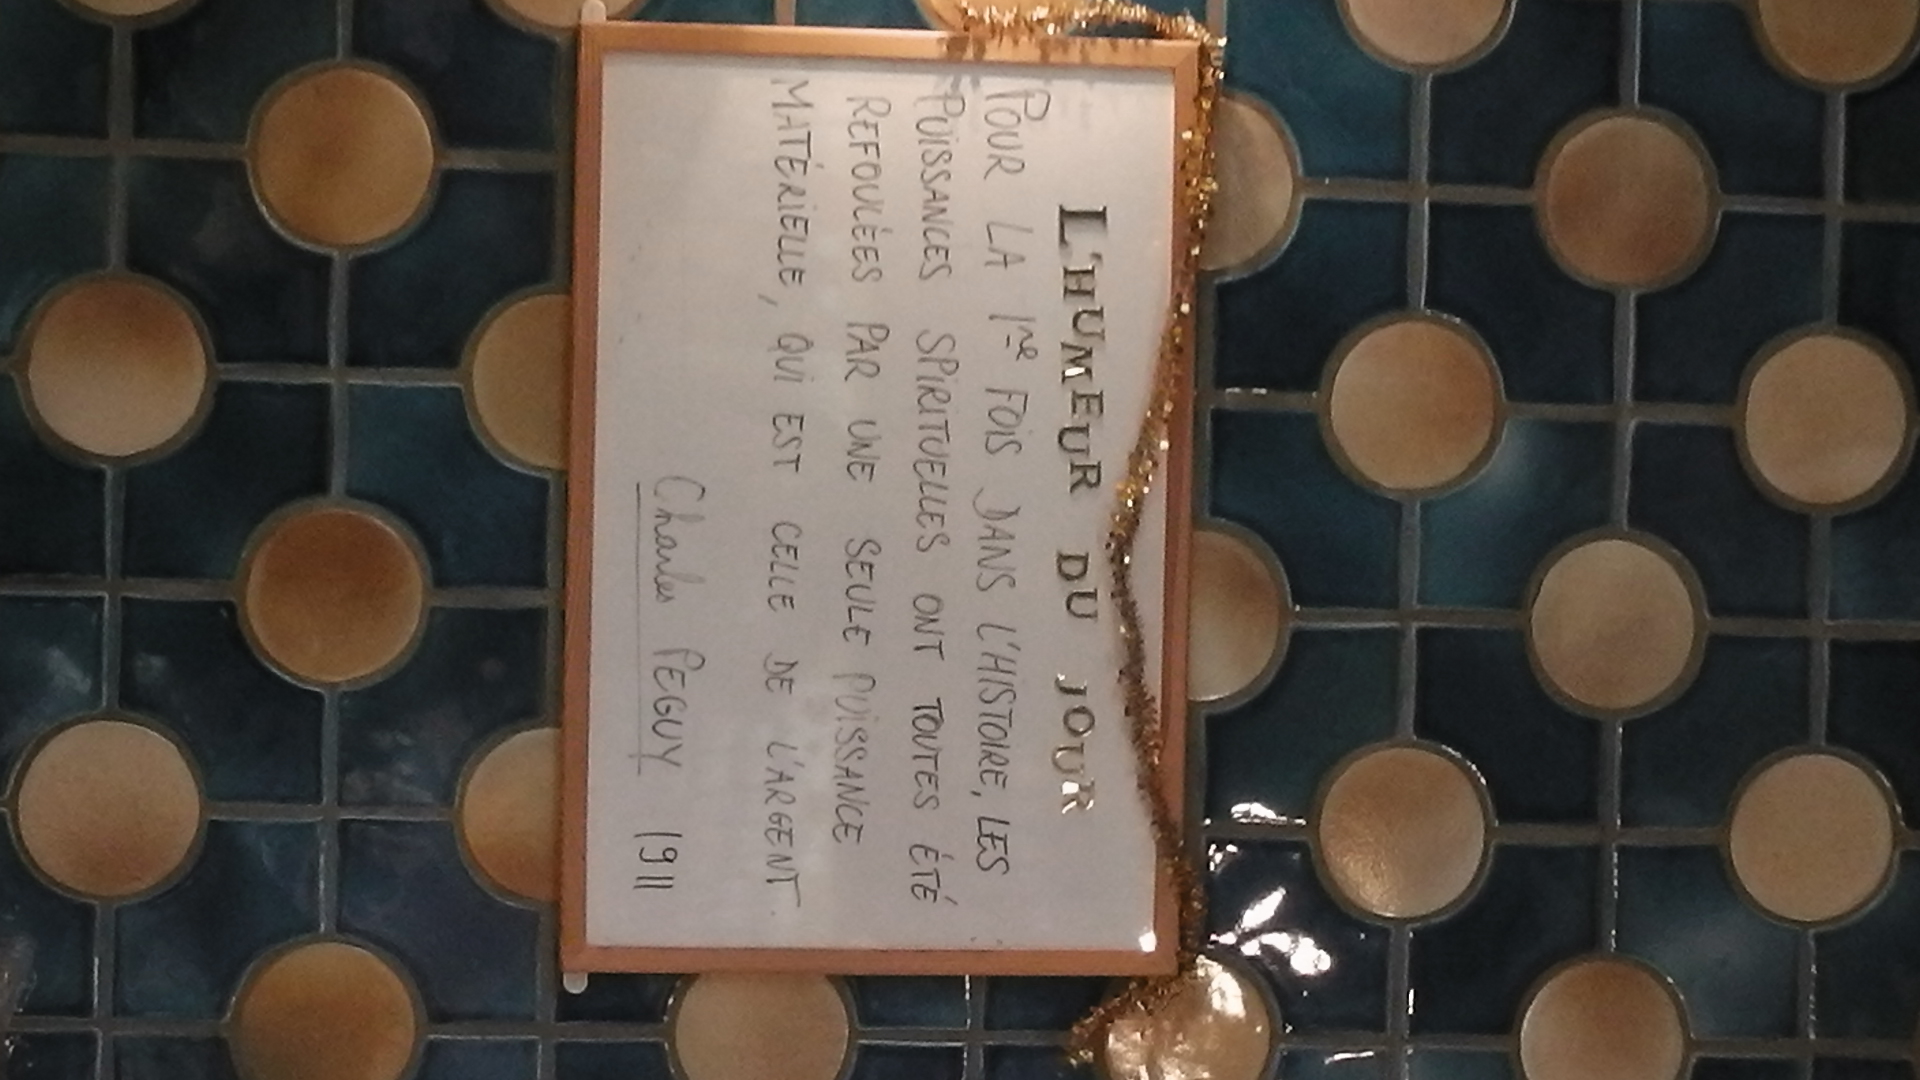 L'HUMEUR DU JOUR
POUR LA 1re FOIS DANS L'HISTOIRE, LES
PUISSANCES SPIRITUELLES ONT TOUTES ÉTÉ
REFOULÉES PAR UNE SEULE PUISSANCE
MATÉRIELLE, QUI EST CELLE DE L'ARGENT.
Charles PEGUY 1911